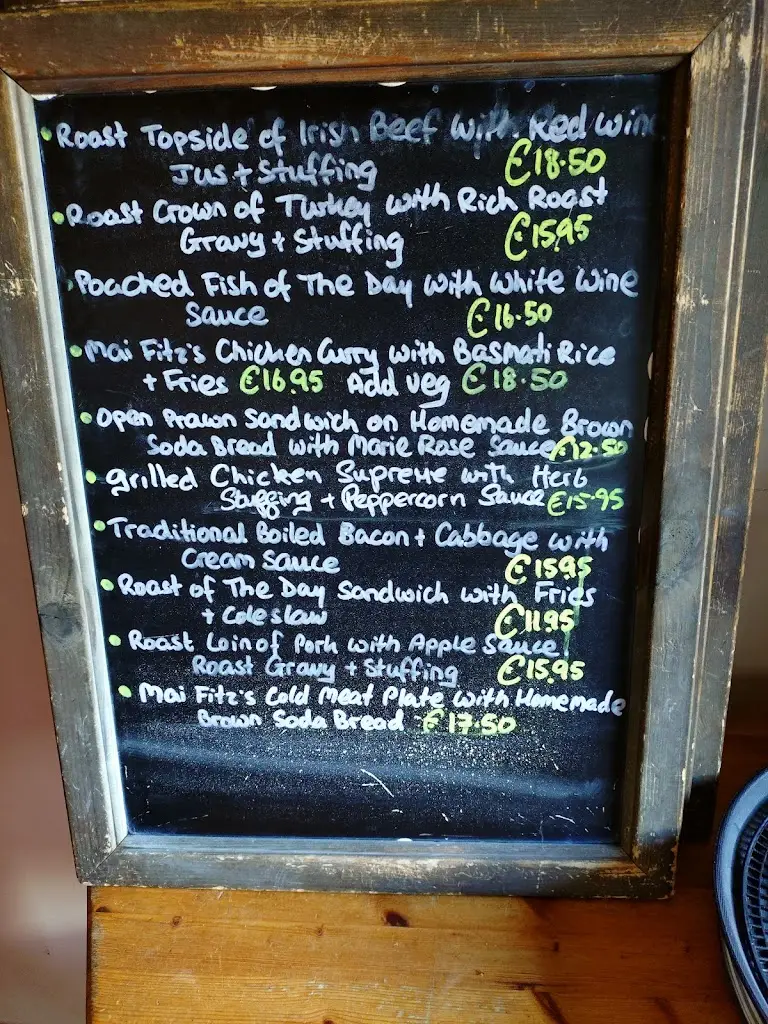 • Roast Topside of Irish Beef with Red Wine
Jus + Stuffing €18.50
• Roast Crown of Turkey with Rich Roast
Gravy + Stuffing €15.95
• Poached Fish of The Day with White Wine
Sauce €16.50
• Mai Fitz's Chicken Curry with Basmati Rice
+ Fries €16.95 Add Veg €18.50
• Open Prawn Sandwich on Homemade Brown
Soda Bread with Marie Rose Sauce €12.50
• Grilled Chicken Supreme with Herb
Stuffing + Peppercorn Sauce €15.95
• Traditional Boiled Bacon + Cabbage with
Cream Sauce €15.95
• Roast of The Day Sandwich with Fries
+ Coleslaw €11.95
• Roast Loin of Pork with Apple Sauce
Roast Gravy + Stuffing €15.95
• Mai Fitz's Cold Meat Plate with Homemade
Brown Soda Bread €17.50